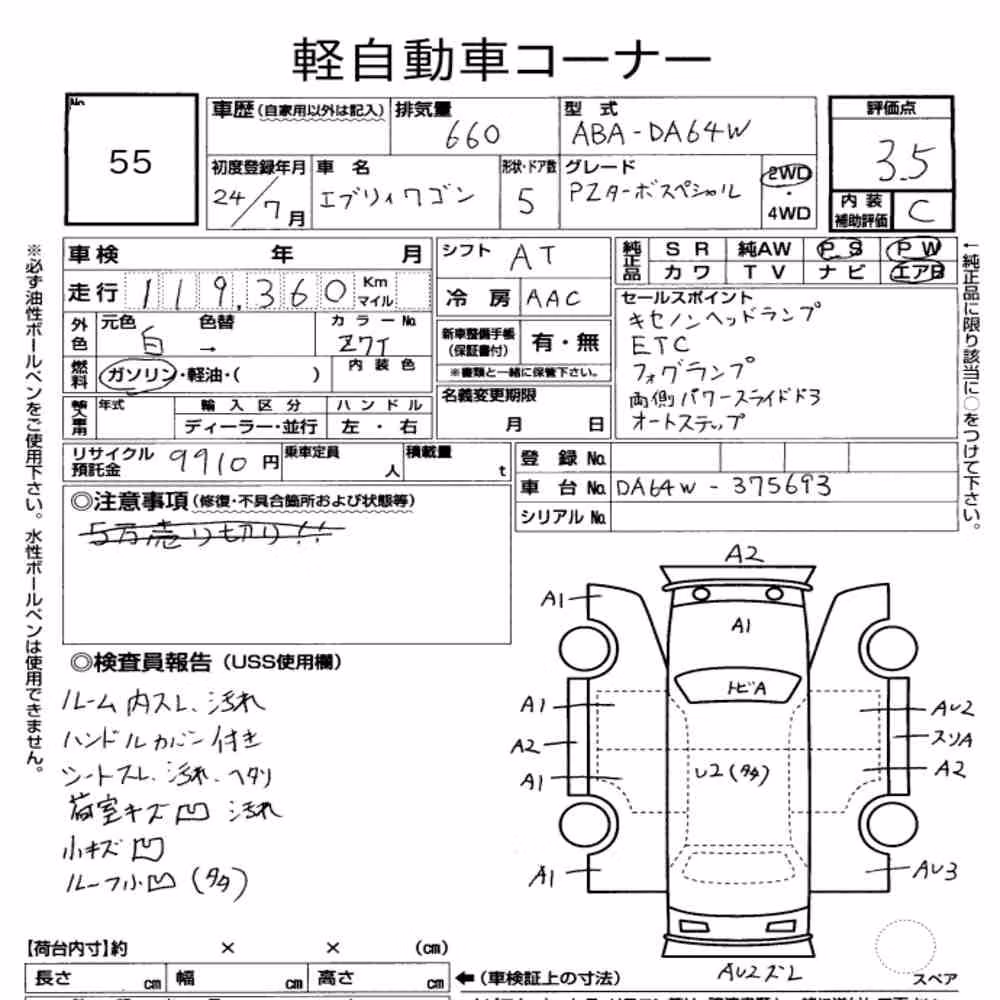 軽自動車コーナー
No.
55
車歴(自家用以外は記入) 排気量 660 型式 ABA-DA64W
評価点 3.5
初度登録年月 24/7月 車名 エブリィワゴン 形状・ドア数 5 グレード PZターボスペシャル 2WD・4WD
内装補助評価 C
車検 年 月
シフト AT
純正品 SR 純AW PS PW
カワ TV ナビ エアB
走行 119,360 Km マイル
冷房 AAC
セールスポイント
キセノンヘッドランプ
ETC
フォグランプ
両側パワースライドドア
オートステップ
外色 元色 白 色替 → カラーNo. Z7T
新車整備手帳(保証書付) 有・無
※書類と一緒に保管下さい。
燃料 ガソリン・軽油・( ) 内装色
名義変更期限 月 日
輸入車用 年式 輸入区分 ハンドル
ディーラー・並行 左・右
リサイクル預託金 9910円 乗車定員 人 積載量 t
登録No.
車台No. DA64W-375693
シリアルNo.
◎注意事項(修復・不具合箇所および状態等)
5万売り切り!!
◎検査員報告(USS使用欄)
ルーム内スレ、汚れ
ハンドルカバー付き
シートスレ、汚れ、ヘタリ
荷室キズ凹 汚れ
小キズ凹
ルーフ小凹(多々)
A2
A1
A1
トビA
A1
A2
A1
U2(多々)
AU2
スリA
A2
A1
AU3
AU2ズレ
スペア
【荷台内寸】約 × × (cm)
長さ cm 幅 cm 高さ cm ←(車検証上の寸法)
※必ず油性ボールペンをご使用下さい。水性ボールペンは使用できません。
←純正品に限り該当に○をつけて下さい。